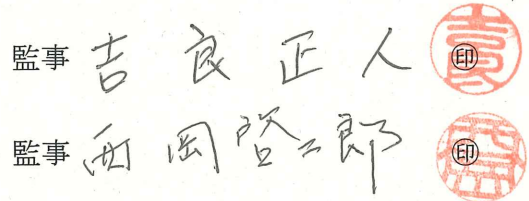 監事 吉良正人 ㊞
監事 西岡啓二郎 ㊞